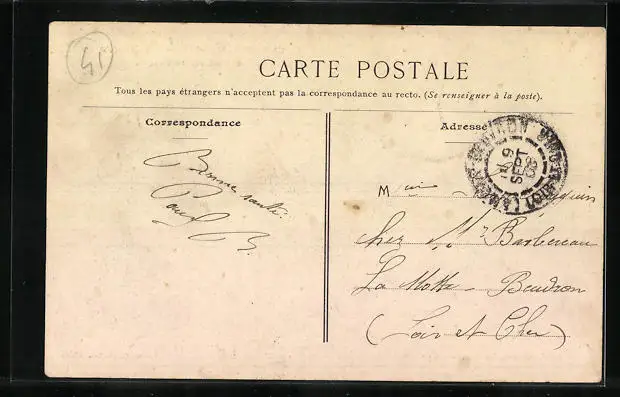 41
CARTE POSTALE
Tous les pays étrangers n'acceptent pas la correspondance au recto. (Se renseigner à la poste).
Correspondance
Adresse
9
SEPT
Bonne santé.
Paul B.
M
chez Mr Barbereau
La Motte-Beuvron
(Loir et Cher)